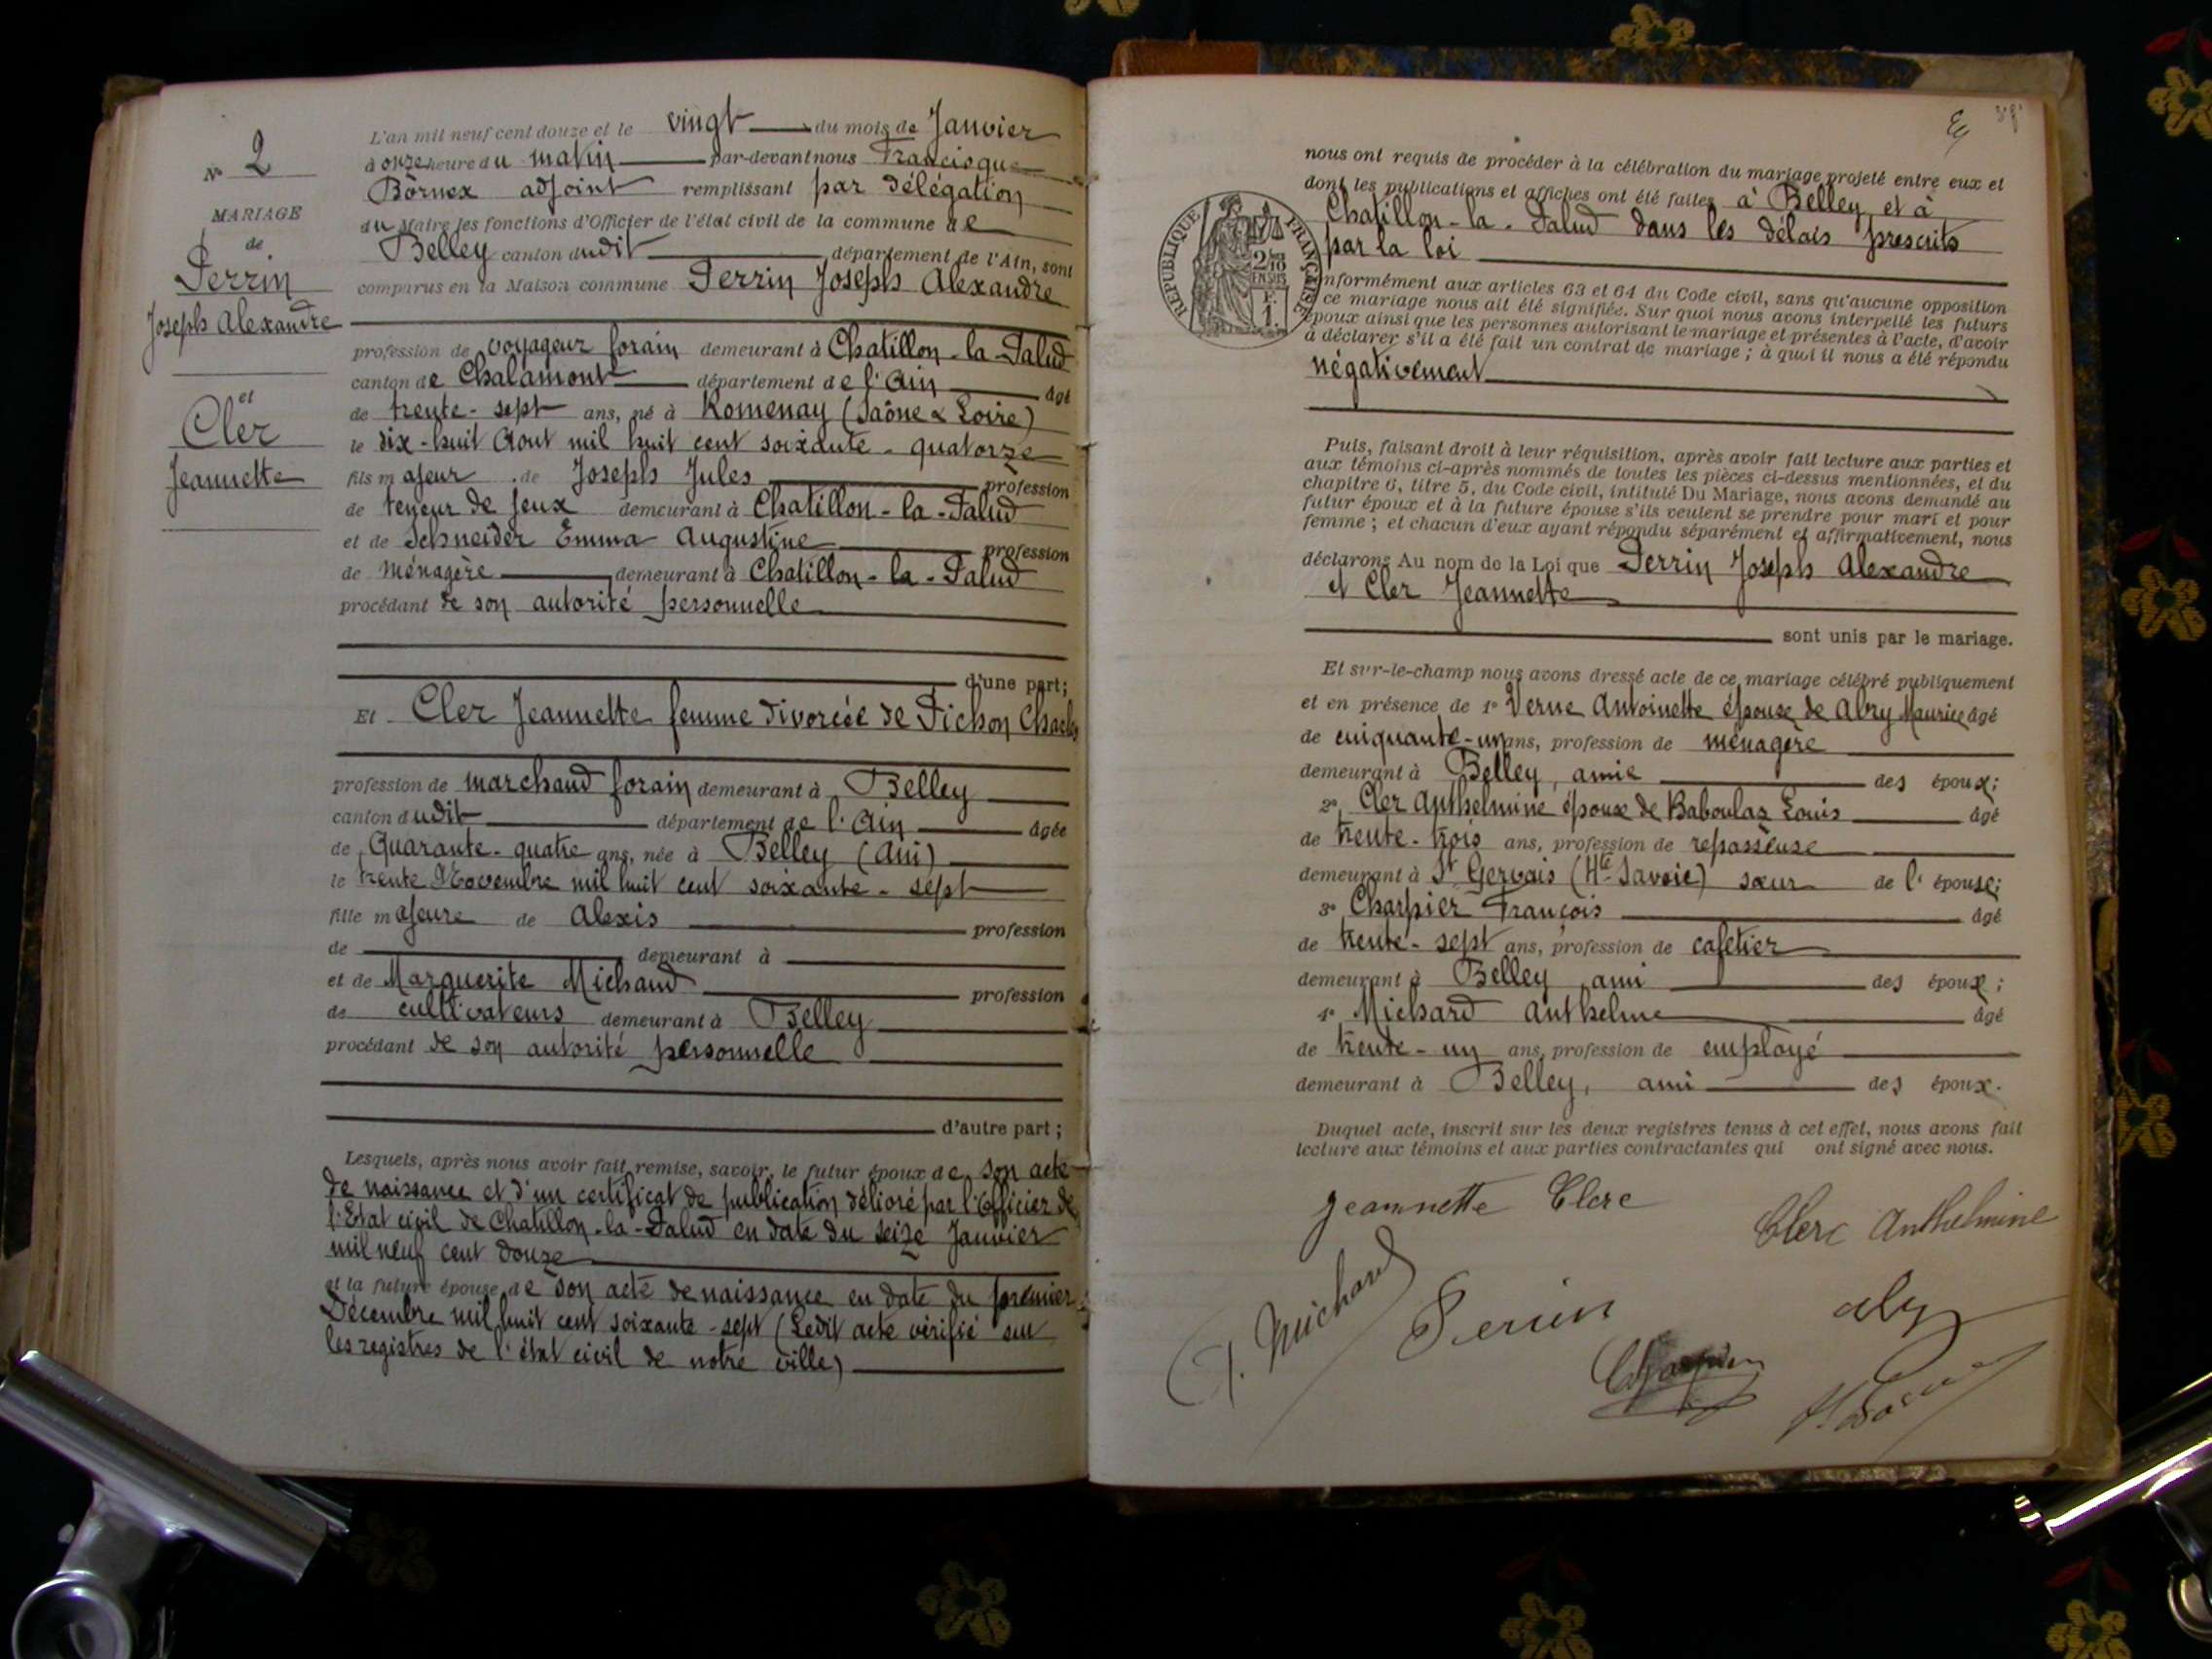 N° 2
MARIAGE
de
Perrin
Joseph Alexandre
et
Cler
Jeannette
L'an mil neuf cent douze et le vingt du mois de Janvier
à onze heure du matin par-devant nous Francisque
Bornex adjoint remplissant par délégation
du Maire les fonctions d'Officier de l'état civil de la commune de
Belley canton dudit département de l'Ain, sont
comparus en la Maison commune Perrin Joseph Alexandre
profession de voyageur forain demeurant à Chatillon-la-Palud
canton de Chalamont département de l'Ain âgé
de trente-sept ans, né à Romenay (Saône & Loire)
le dix-huit Aout mil huit cent soixante-quatorze
fils majeur de Joseph Jules profession
de teneur de jeux demeurant à Chatillon-la-Palud
et de Schneider Emma Augustine profession
de ménagère demeurant à Chatillon-la-Palud
procédant de son autorité personnelle
d'une part;
Et Cler Jeannette femme divorcée de Pichon Charles
profession de marchand forain demeurant à Belley
canton dudit département de l'Ain âgée
de Quarante-quatre ans, née à Belley (Ain)
le trente Novembre mil huit cent soixante-sept
fille majeure de Alexis profession
de demeurant à
et de Marguerite Michaud profession
de cultivateurs demeurant à Belley
procédant de son autorité personnelle
d'autre part;
Lesquels, après nous avoir fait remise, savoir, le futur époux de son acte
de naissance et d'un certificat de publication délivré par l'Officier de
l'Etat civil de Chatillon-la-Palud en date du seize Janvier
mil neuf cent douze
et la future épouse de son acte de naissance en date du premier
Décembre mil huit cent soixante-sept (Ledit acte vérifié sur
les registres de l'état civil de notre ville)
nous ont requis de procéder à la célébration du mariage projeté entre eux et
dont les publications et affiches ont été faites à Belley et à
Chatillon-la-Palud dans les délais prescrits
par la loi
RÉPUBLIQUE FRANÇAISE
2/10
EN SUS
F.
1.
nformément aux articles 63 et 64 du Code civil, sans qu'aucune opposition
ce mariage nous ait été signifiée. Sur quoi nous avons interpellé les futurs
époux ainsi que les personnes autorisant le mariage et présentes à l'acte, d'avoir
à déclarer s'il a été fait un contrat de mariage; à quoi il nous a été répondu
négativement
Puis, faisant droit à leur réquisition, après avoir fait lecture aux parties et
aux témoins ci-après nommés de toutes les pièces ci-dessus mentionnées, et du
chapitre 6, titre 5, du Code civil, intitulé Du Mariage, nous avons demandé au
futur époux et à la future épouse s'ils veulent se prendre pour mari et pour
femme; et chacun d'eux ayant répondu séparément et affirmativement, nous
déclarons Au nom de la Loi que Perrin Joseph Alexandre
et Cler Jeannette
sont unis par le mariage.
Et sur-le-champ nous avons dressé acte de ce mariage célébré publiquement
et en présence de 1° Verne Antoinette épouse de Abry Maurice âgé
de cinquante-un ans, profession de ménagère
demeurant à Belley, amie des époux;
2° Cler Anthelmine épouse de Baboulaz Louis âgé
de trente-trois ans, profession de repasseuse
demeurant à St Gervais (Hte Savoie) sœur de l'épouse;
3° Charpier François âgé
de trente-sept ans, profession de cafetier
demeurant à Belley ami des époux;
4° Michard Anthelme âgé
de trente-un ans, profession de employé
demeurant à Belley, ami des époux.
Duquel acte, inscrit sur les deux registres tenus à cet effet, nous avons fait
lecture aux témoins et aux parties contractantes qui ont signé avec nous.
Jeannette Clerc
Clerc Anthelmine
Michard
Perrin
Abry
Charpier